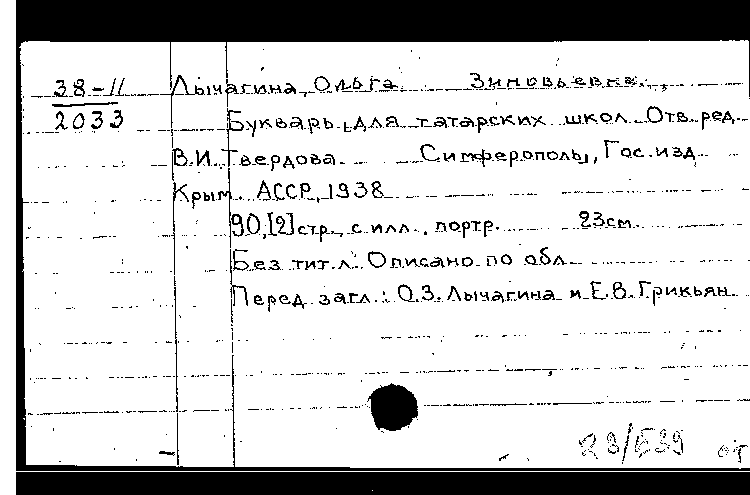 38-II Лычагина, Ольга Зиновьевна.,
2033 Букварь для татарских школ Отв. ред.
В.И. Твердова. Симферополь, Гос. изд
Крым. АССР, 1938
90,[2] стр., с илл., портр. 23см.
Без тит. л. Описано по обл.
Перед загл.: О.З. Лычагина и Е.В. Грикьян
от